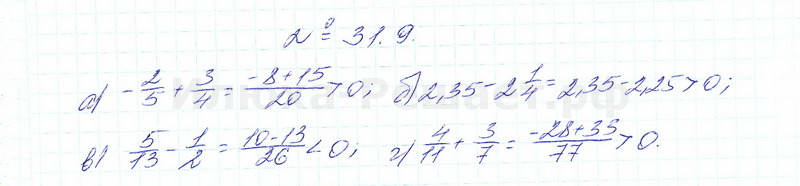 № 31.9.
а) -2/5 + 3/4 = (-8+15)/20 > 0; б) 2,35 - 2 1/4 = 2,35 - 2,25 > 0;
в) 5/13 - 1/2 = (10-13)/26 < 0; г) 4/11 + 3/7 = (-28+33)/77 > 0.